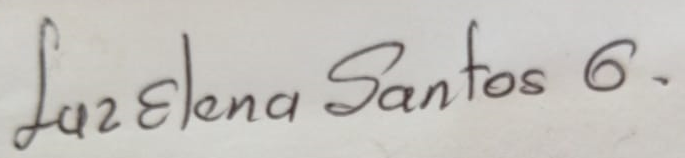 Luz Elena Santos G.